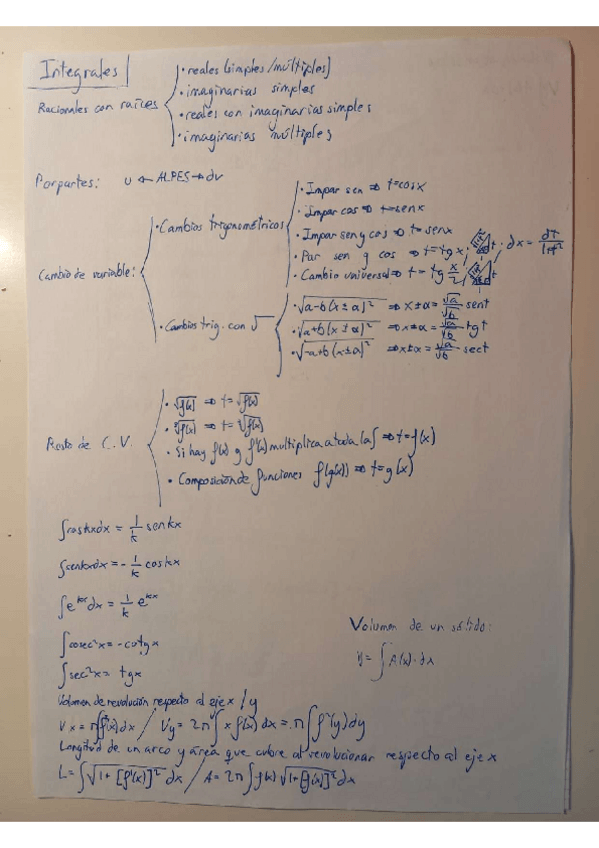 Integrales
Racionales con raíces
· reales (simples/múltiples)
· imaginarias simples
· reales con imaginarias simples
· imaginarias múltiples
Por partes: u ← ALPES → dv
Cambio de variable:
· Cambios trigonométricos
· Impar sen ⇒ t=cosx
· Impar cos ⇒ t=senx
· Impar sen y cos ⇒ t=senx
· Par sen y cos ⇒ t=tg x · dx = dt/1+t²
· Cambio universal ⇒ t=tg x/2
· Cambios trig. con √
· √a-b(x±α)² ⇒ x±α = √a/√b sent
· √a+b(x±α)² ⇒ x±α = √a/√b tgt
· √-a+b(x±α)² ⇒ x±α = √a/√b sect
Resto de C.V.
· √f(x) ⇒ t=√f(x)
· ⁿ√f(x) ⇒ t=ⁿ√f(x)
· Si hay f(x) y f'(x) multiplica a toda la ∫ ⇒ t=f(x)
· Composición de funciones f(g(x)) ⇒ t=g(x)
∫coskxdx = 1/k senkx
∫senkxdx = -1/k coskx
∫e^kx dx = 1/k e^kx
∫cosec²x = -cotgx
∫sec²x = tgx
Volumen de un sólido:
V = ∫A(x)·dx
Volumen de revolución respecto al eje x / y
Vx = π∫f²(x)dx / Vy = 2π∫x f(x)dx = π∫f²(y)dy
Longitud de un arco y área que cubre al revolucionar respecto al eje x
L = ∫√1+[f'(x)]² dx / A = 2π∫f(x)√1+[f'(x)]² dx